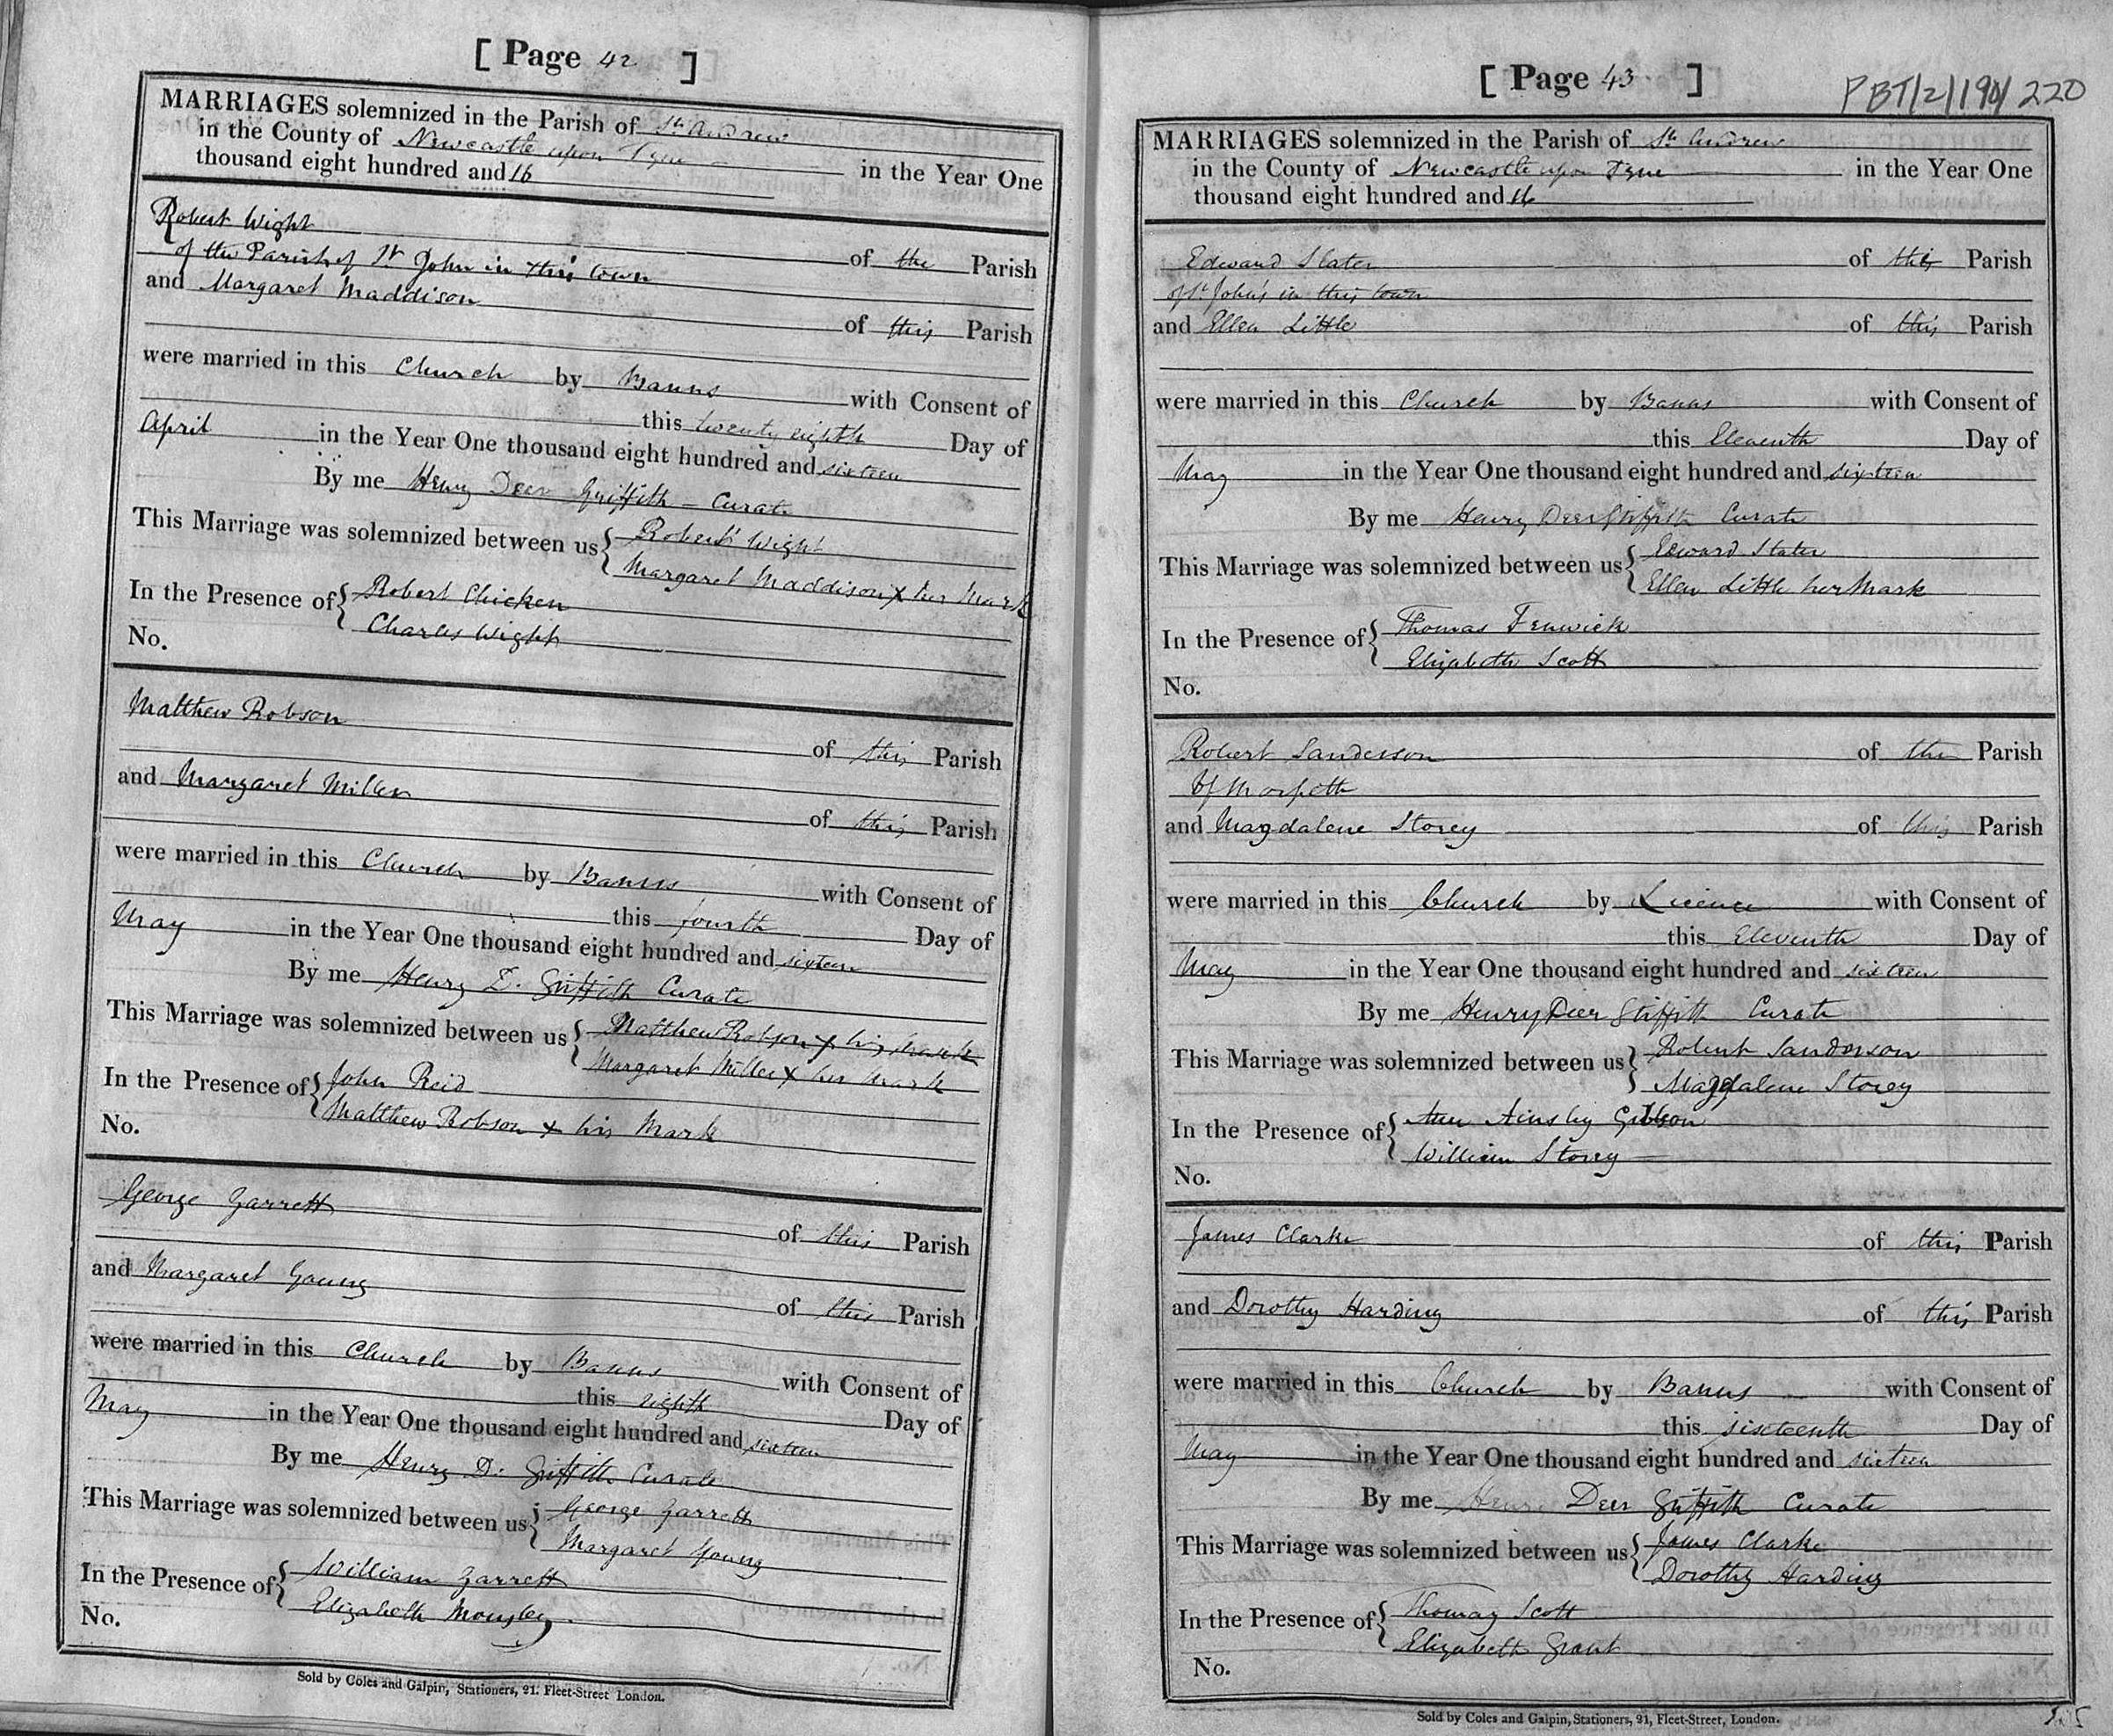 [ Page 42 ]
MARRIAGES solemnized in the Parish of St. Andrew
in the County of Newcastle upon Tyne in the Year One
thousand eight hundred and 16
Robert Wight of the Parish
of the Parish of St John in this town
and Margaret Maddison
of this Parish
were married in this Church by Banns with Consent of
this twenty eighth Day of
April in the Year One thousand eight hundred and sixteen
By me Henry Deer Griffith - Curate
This Marriage was solemnized between us { Robert Wight
Margaret Maddison X her Mark
In the Presence of { Robert Chicken
Charles Wight
No.
Matthew Robson
of this Parish
and Margaret Miller
of this Parish
were married in this Church by Banns with Consent of
this fourth Day of
May in the Year One thousand eight hundred and sixteen
By me Henry D. Griffith Curate
This Marriage was solemnized between us { Matthew Robson X his Mark
Margaret Miller X her Mark
In the Presence of { John Reid
Matthew Robson X his Mark
No.
George Garrett
of this Parish
and Margaret Young
of this Parish
were married in this Church by Banns with Consent of
this eighth Day of
May in the Year One thousand eight hundred and sixteen
By me Henry D. Griffith Curate
This Marriage was solemnized between us { George Garrett
Margaret Young
In the Presence of { William Garrett
Elizabeth
No.
Sold by Coles and Galpin, Stationers, 21, Fleet-Street London.
[ Page 43 ]
PBT/2/194/220
MARRIAGES solemnized in the Parish of St. Andrew
in the County of Newcastle upon Tyne in the Year One
thousand eight hundred and 16
Edward Slater of the Parish
of St. John's in this town
and Ellen Little of this Parish
were married in this Church by Banns with Consent of
this Eleventh Day of
May in the Year One thousand eight hundred and sixteen
By me Henry Deer Griffith Curate
This Marriage was solemnized between us { Edward Slater
Ellen Little her Mark
In the Presence of { Thomas Fenwick
Elizabeth Scott
No.
Robert Sanderson of the Parish
of Morpeth
and Magdalene Storey of this Parish
were married in this Church by Licence with Consent of
this Eleventh Day of
May in the Year One thousand eight hundred and sixteen
By me Henry Deer Griffith Curate
This Marriage was solemnized between us { Robert Sanderson
Magdalene Storey
In the Presence of { Ann Ainsley Gibson
William Storey
No.
James Clarke of this Parish
and Dorothy Harding of this Parish
were married in this Church by Banns with Consent of
this sixteenth Day of
May in the Year One thousand eight hundred and sixteen
By me Henry Deer Griffith Curate
This Marriage was solemnized between us { James Clarke
Dorothy Harding
In the Presence of { Thomas Scott
Elizabeth Grant
No.
Sold by Coles and Galpin, Stationers, 21, Fleet-Street, London.